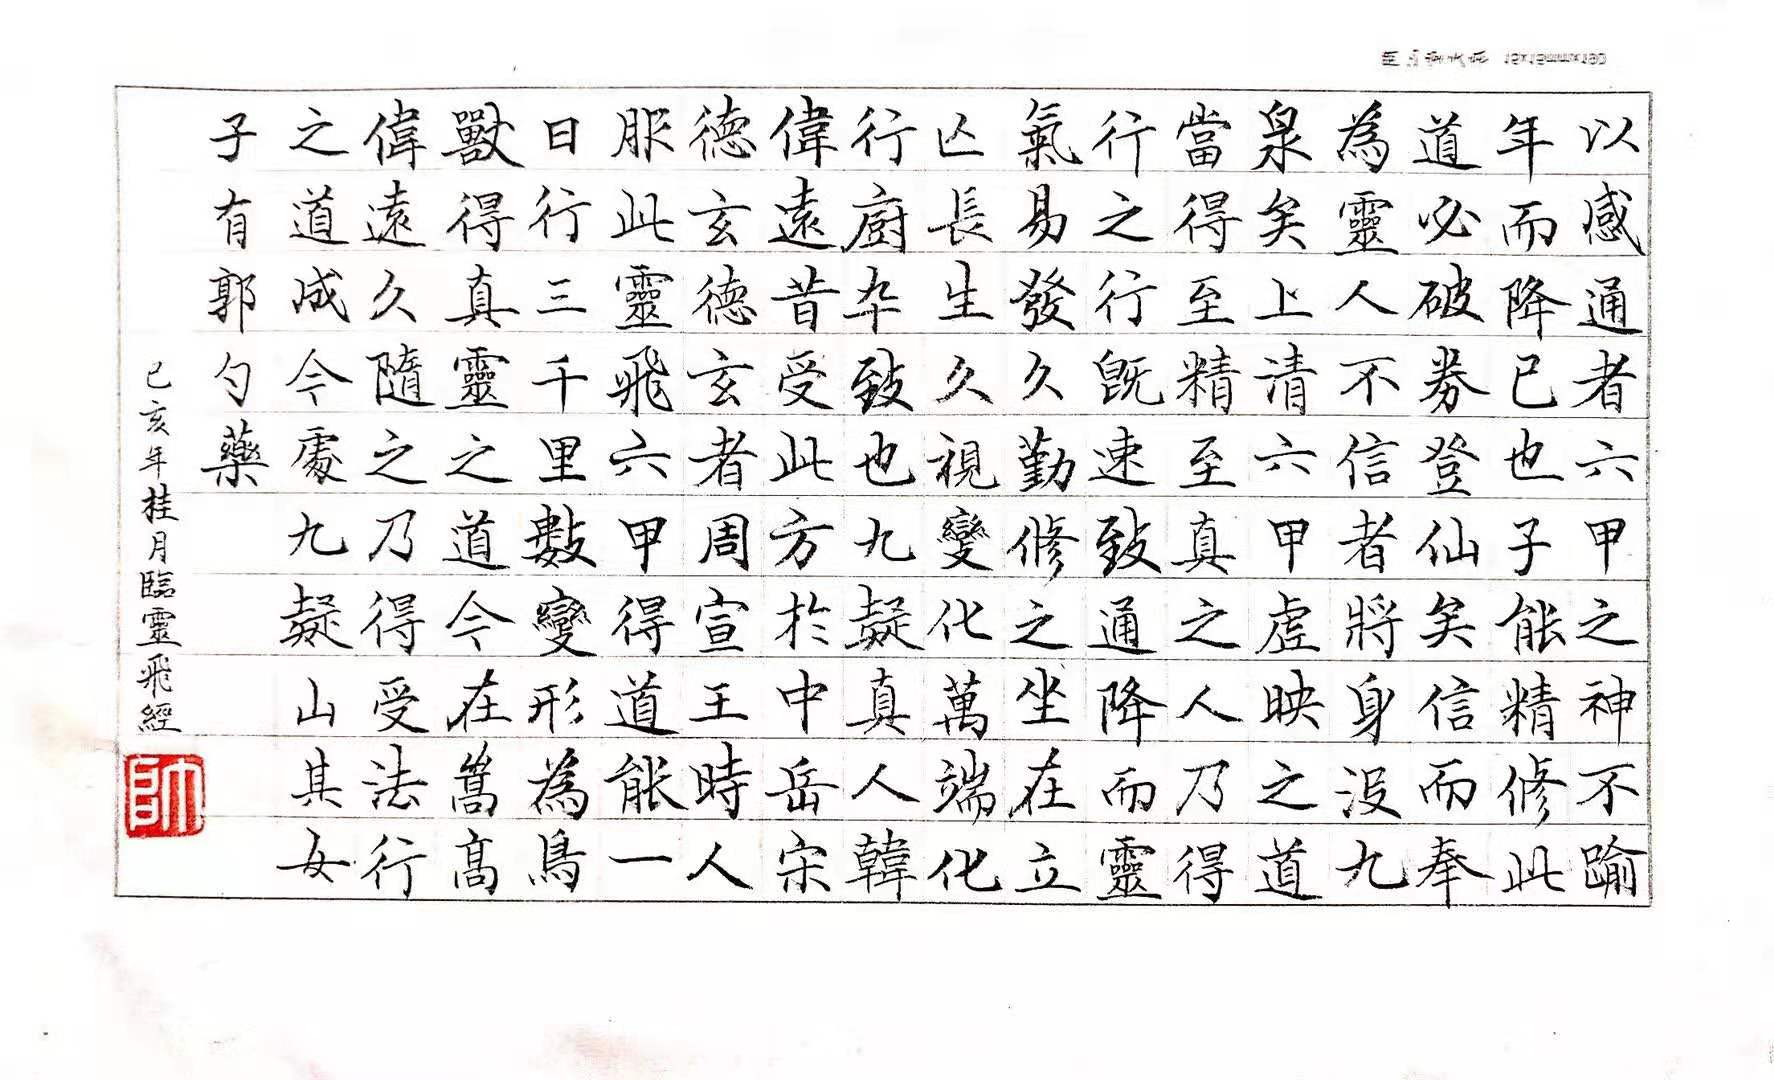 以感通者六甲之神不踰
年而降已也子能精修此
道必破券登仙矣信而奉
為靈人不信者將身沒九
泉矣上清六甲虛映之道
當得至精至真之人乃得
行之行既速致通降而靈
氣易發久勤修之坐在立
亾長生久視變化萬端化
行廚卒致也九疑真人韓
偉遠昔受此方於中岳宋
德玄德玄者周宣王時人
服此靈飛六甲得道能一
日行三千里數變形為鳥
獸得真靈之道今在嵩高
偉遠久隨之乃得受法行
之道成今處九疑山其女
子有郭勺藥
己亥年桂月臨靈飛經
帥